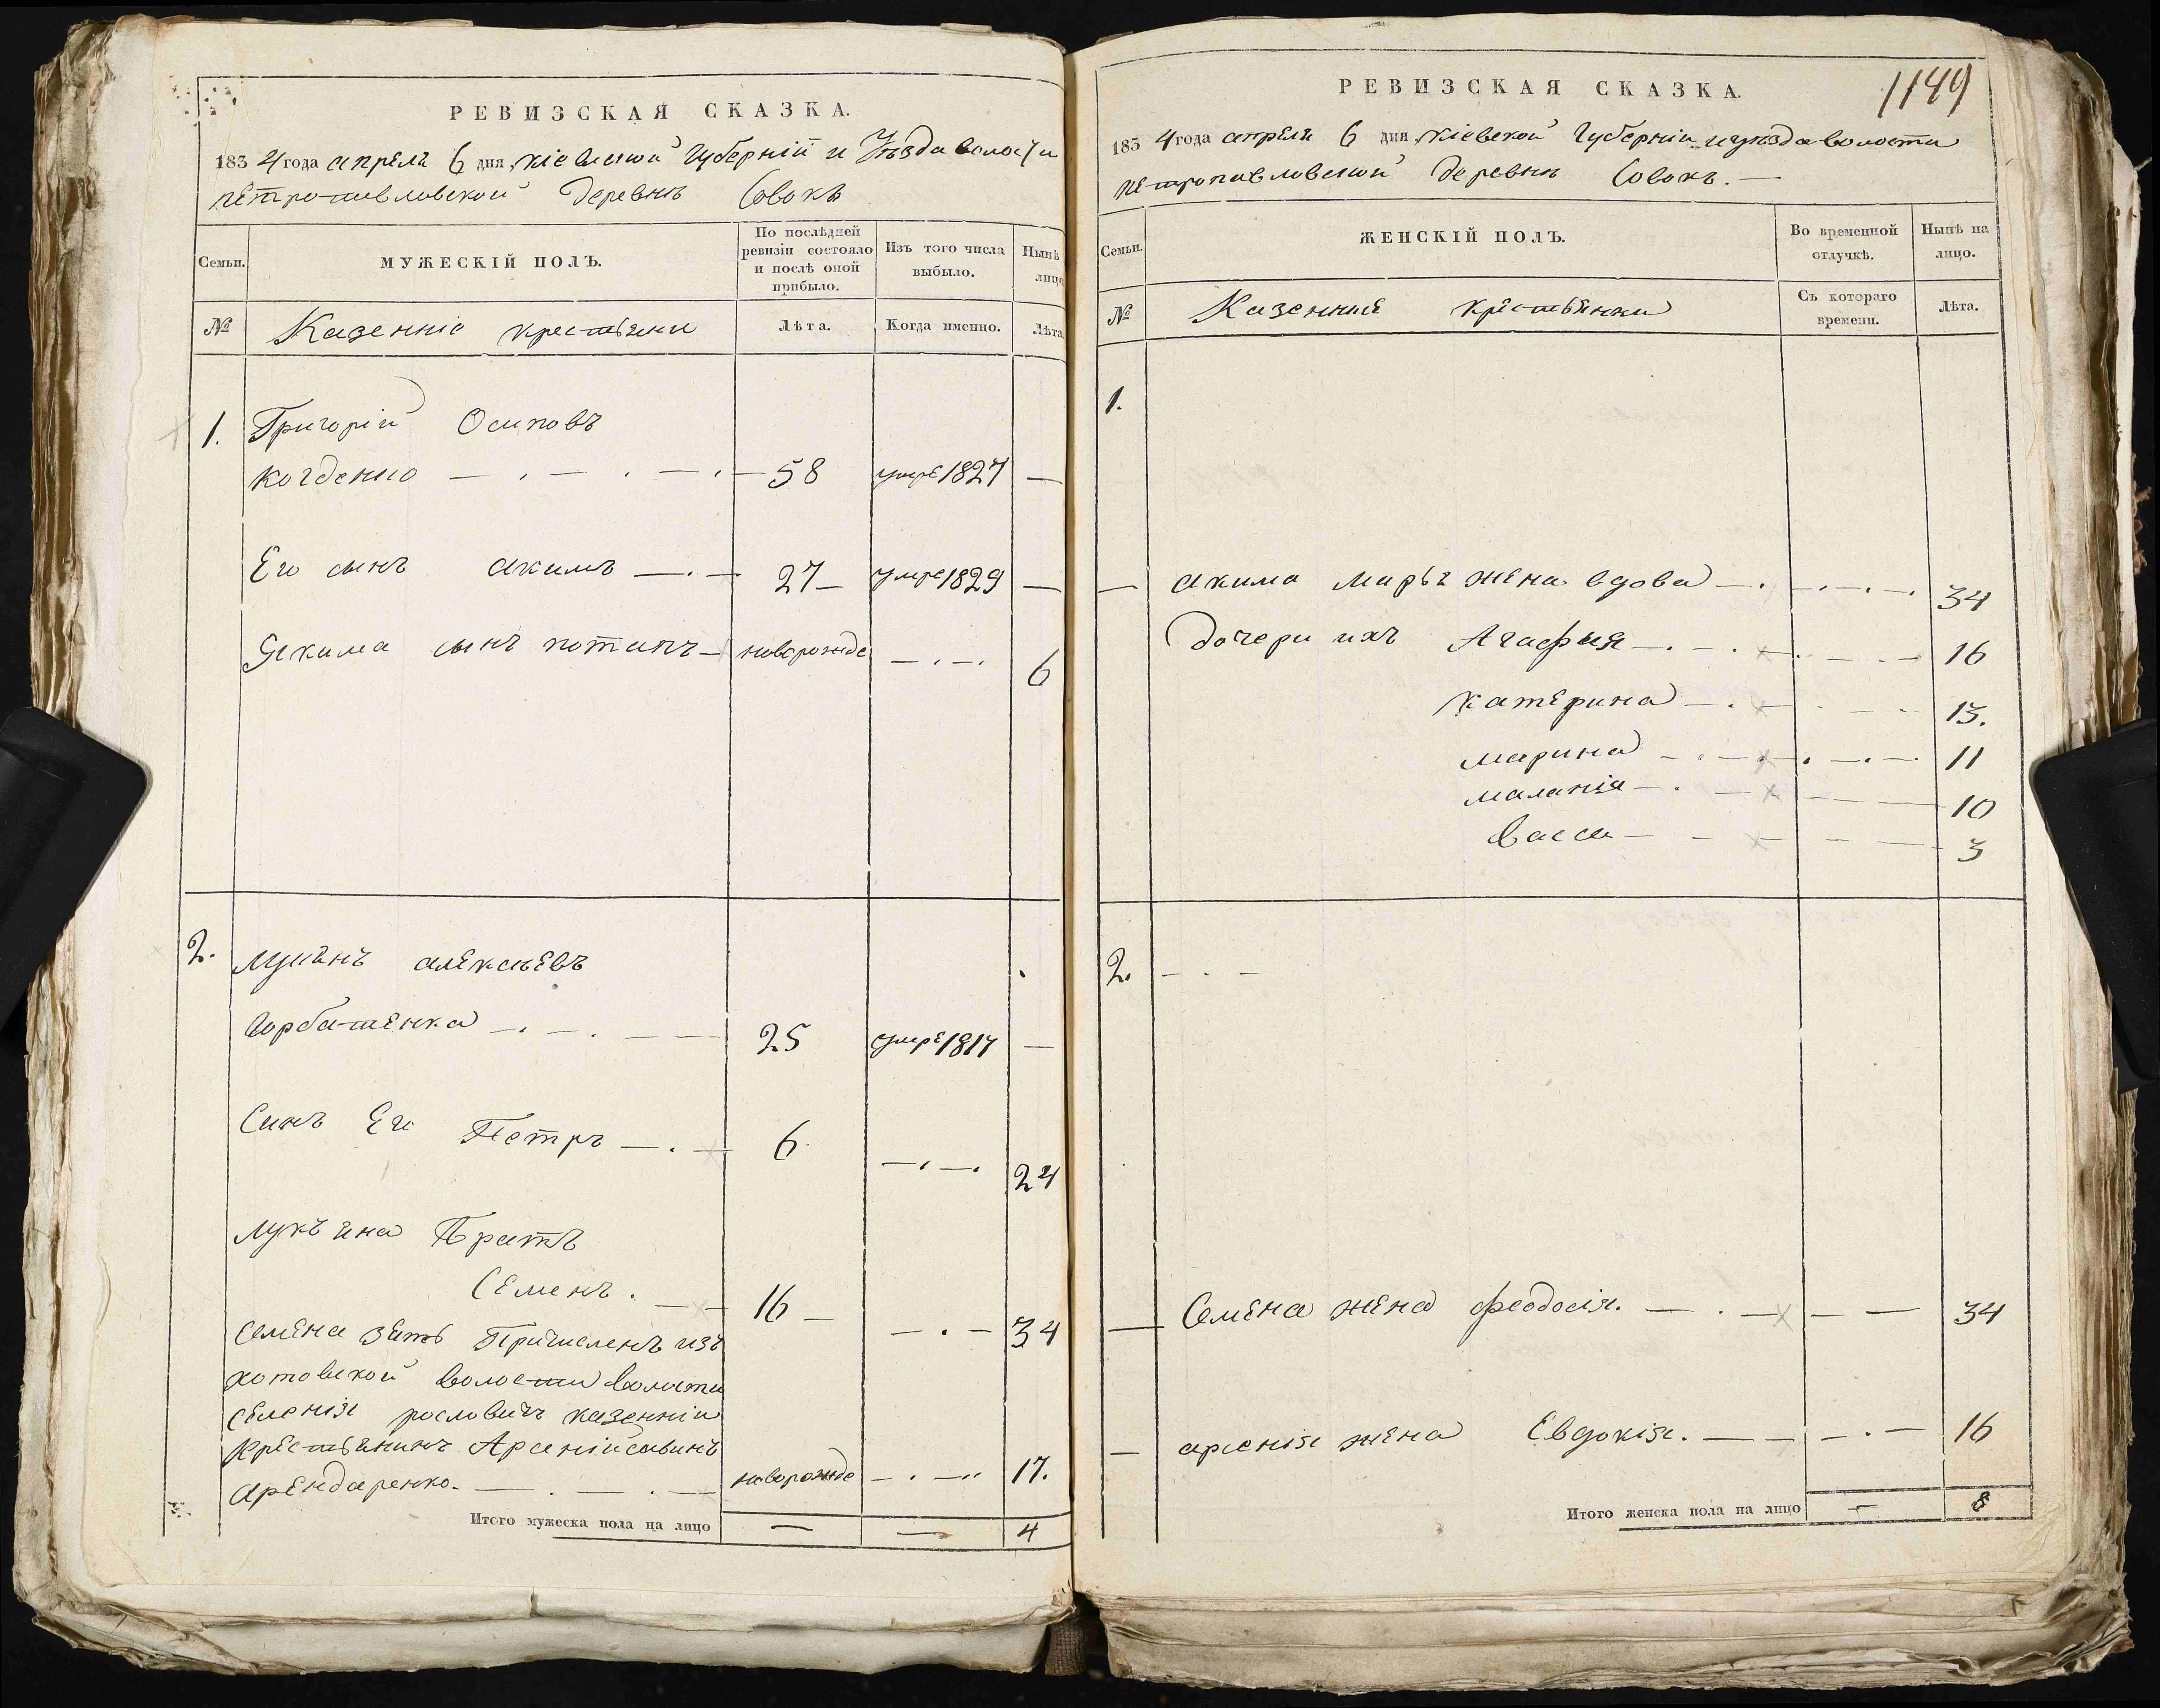 РЕВИЗСКАЯ СКАЗКА.
183 4 года апреля 6 дня, кіевской Губерніи и Уѣзда волости
петропавловской деревнѣ Совокъ
Семьи.
МУЖЕСКІЙ ПОЛЪ.
По послѣдней ревизіи состояло и послѣ оной прибыло.
Изъ того числа выбыло.
Нынѣ
лицо
№
Казенніе крестьяни
Лѣта.
Когда именно.
Лѣта
1. Григорій Осиповъ
— . — . — . — 58 умре 1827 —
Его сынъ акимъ — . — 27 — умре 1829 —
Якима сынъ потапъ — новорожде — . — . 6
2. алексѣевъ
Горбатенка — . — . — — 25 умре 1817 —
Синъ Его Петръ — . — 6 — . — . 24
Лукъяна Братъ
Семенъ . — — 16 — — . — 34
Семена зять Причисленъ изъ
хотовской волости волости
селенія рословичъ казенній
крестьянинъ Арсеній савинъ
арендаренко. — . — . — новорожде — . — .. 17.
Итого мужеска пола на лицо — — 4
1149
РЕВИЗСКАЯ СКАЗКА.
183 4 года апреля 6 дня, кіевской Губерніи и уѣзда волости
петропавловской деревни Совокъ. —
Семьи.
ЖЕНСКІЙ ПОЛЪ.
Во временной отлучкѣ.
Нынѣ на лицо.
№
Казенние крестьянки
Съ котораго времени.
Лѣта.
1.
— акима жена вдова — . — . — . 34
дочери ихъ Агафия — . — . — . — 16
Катерина — . — — — 13.
марина — . — . — . — 11
маланія — . — — — 10
Васса — — — — — 3
2. — . —
— Семена жена феодосія. — . — — — 34
— арсенія жена Евдокія. — — — . — 16
Итого женска пола на лицо — 8